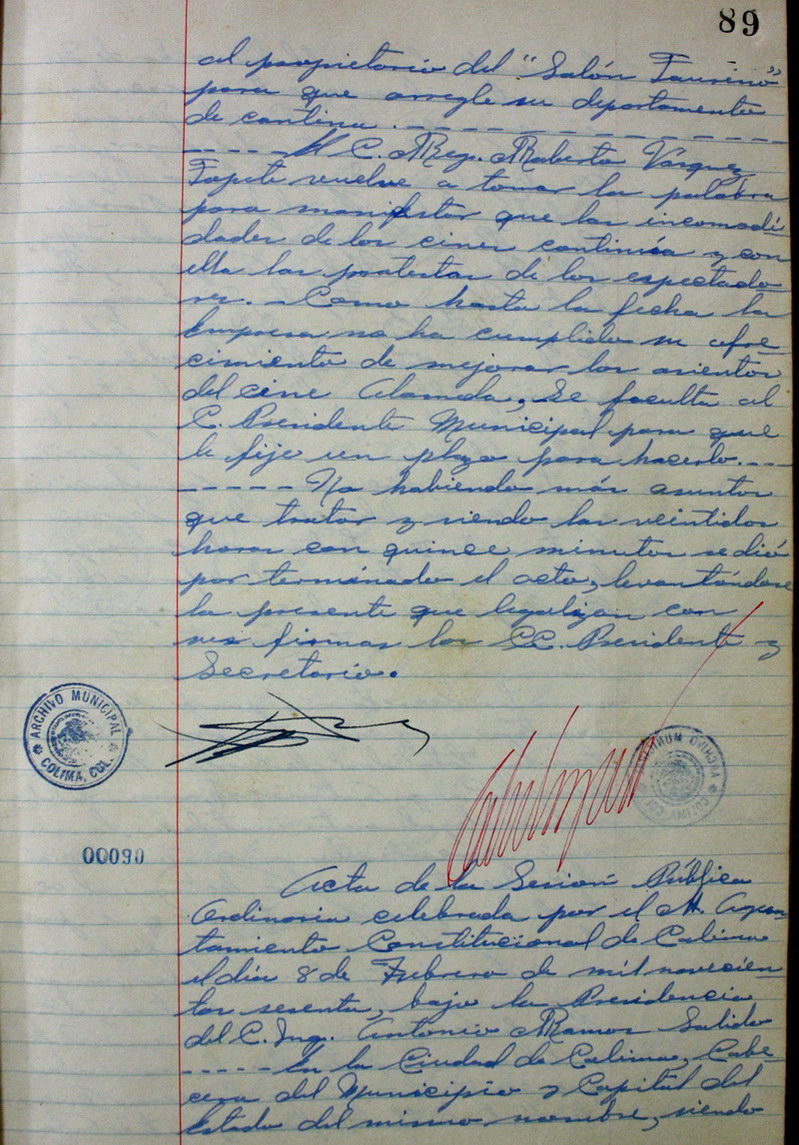 89
al propietario del "Salón Taurino"
para que arregle su departamento
de cantina. - - - - - - - - - - - - -
- - - - - El C. Reg. Roberto Vázquez
Tapete vuelve a tomar la palabra
para manifestar que las incomodi
dades de los cines continúa y con
ella las protestas de los espectado
res. - Como hasta la fecha la
Empresa no ha cumplido su ofre
cimiento de mejorar los asientos
del cine Alameda, se faculta al
C. Presidente Municipal para que
le fije un plazo para hacerlo. - - -
- - - - - No habiendo más asuntos
que tratar y siendo las veintidos
horas con quince minutos se dió
por terminado el acto, levantándose
la presente que legalizan con
sus firmas los CC. Presidente y
Secretario.
ARCHIVO MUNICIPAL
COLIMA, COL.
00090
Acta de la Sesión Pública
Ordinaria celebrada por el H. Ayun
tamiento Constitucional de Colima
el día 8 de Febrero de mil novecien
tos sesenta, bajo la Presidencia
del C. Ing. Antonio Ramos Salido
- - - - - En la Ciudad de Colima, Cabe
cera del Municipio y Capital del
Estado del mismo nombre, siendo